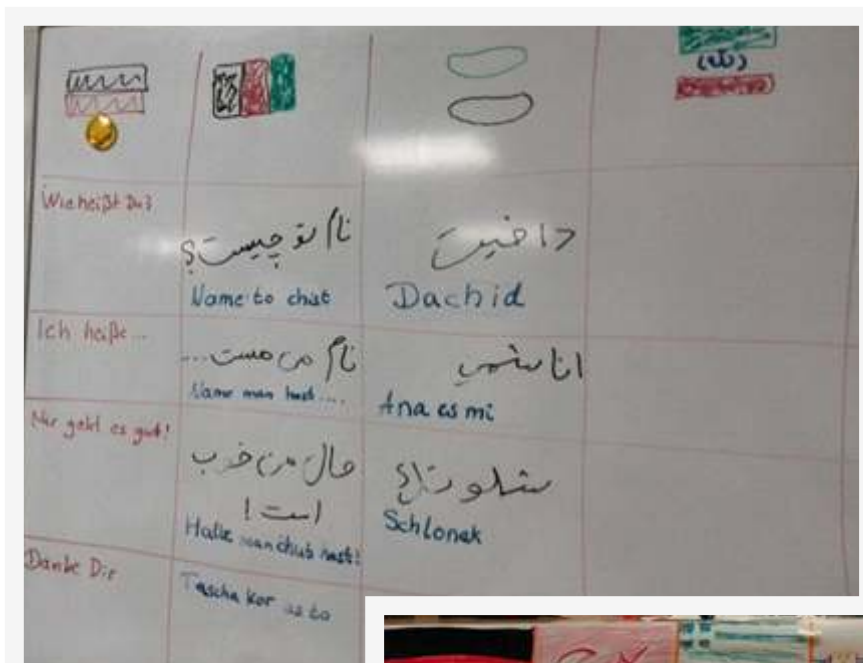 Wie heißt Du?
نام تو چیست؟
Name to chist
Dachid
Ich heiße...
نام من هست...
Name man hast....
انا
Ana es mi
Mir geht es gut!
حال من خوب
است!
Halle man chub hast!
Schlonak
Danke Dir
Taschakor as to